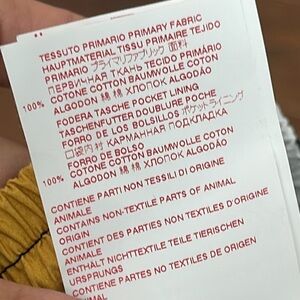 TESSUTO PRIMARIO PRIMARY FABRIC
HAUPTMATERIAL TISSU PRIMAIRE TEJIDO
PRIMARIO プライマリファブリック 面料
ПЕРВИЧНАЯ ТКАНЬ TECIDO PRIMÁRIO
100% COTONE COTTON BAUMWOLLE COTON
ALGODON 綿 棉 ХЛОПОК ALGODÃO
FODERA TASCHE POCKET LINING
TASCHENFUTTER DOUBLURE POCHE
FORRO DE LOS BOLSILLOS ポケットライニング
口袋内衬 КАРМАННАЯ ПОДКЛАДКА
FORRO DE BOLSO
100% COTONE COTTON BAUMWOLLE COTON
ALGODON 綿 棉 ХЛОПОК ALGODÃO
CONTIENE PARTI NON TESSILI DI ORIGINE
ANIMALE
CONTAINS NON-TEXTILE PARTS OF ANIMAL
ORIGIN
CONTIENT DES PARTIES NON TEXTILES D'ORIGINE
ANIMALE
ENTHÄLT NICHTTEXTILE TEILE TIERISCHEN
URSPRUNGS
CONTIENE PARTES NO TEXTILES DE ORIGEN